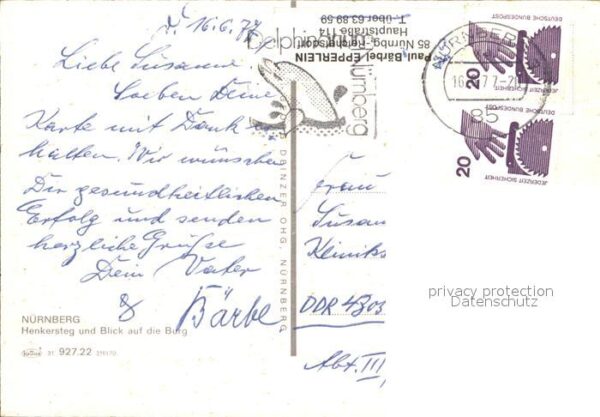 d. 16.6.77
Liebe Susanne.
Soeben Deine
Karte mit Dank er
halten. Wir wünschen
Dir gesundheitlichen
Erfolg und senden
herzliche Grüße
Dein Vater
&
Bärbe
NÜRNBERG
Henkersteg und Blick auf die Burg
31 927.22
OHG, NÜRNBERG
Paul, Bärbel EPPERLEIN
85 Nürnbg.
Hauptstraße 114
T. über 63 89 59
Delphinarium
Nürnberg
NÜRNBERG
16. 7 7-20
85
DEUTSCHE BUNDESPOST
JEDERZEIT SICHERHEIT
20
DEUTSCHE BUNDESPOST
JEDERZEIT SICHERHEIT
20
Frau
Susan
Kliniks
DDR 4303
Abt. III
privacy protection
Datenschutz